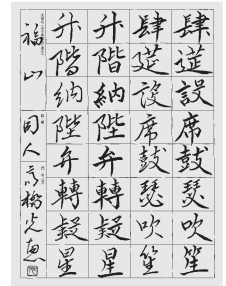 肆筵設席鼓瑟吹笙
肆筵設席鼓瑟吹笙
升階納陛弁轉疑星
升階納陛弁轉疑星
福山 同人 高橋